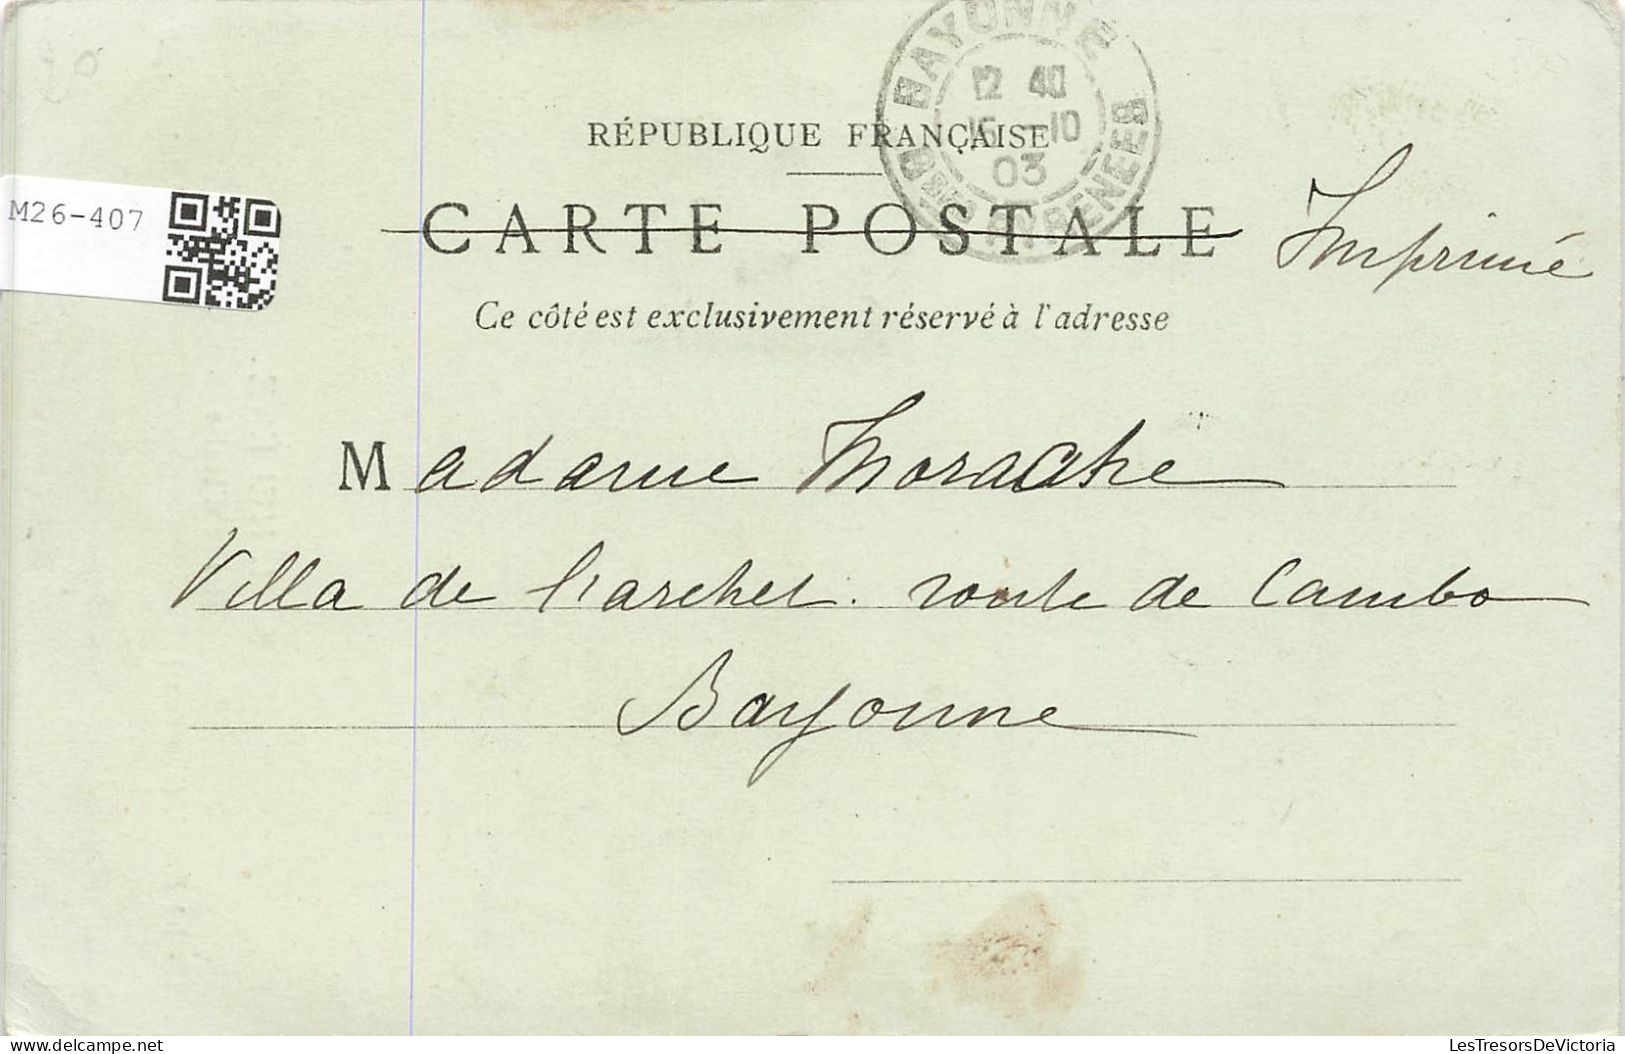 BAYONNE
12 40
15 -10
03
BSES PYRENEES
RÉPUBLIQUE FRANÇAISE
M26-407
CARTE POSTALE
Imprimé
Ce côté est exclusivement réservé à l'adresse
Madame Morache
Villa de l'archet. route de Cambo
Bayonne
delcampe.net
LesTresorsDeVictoria